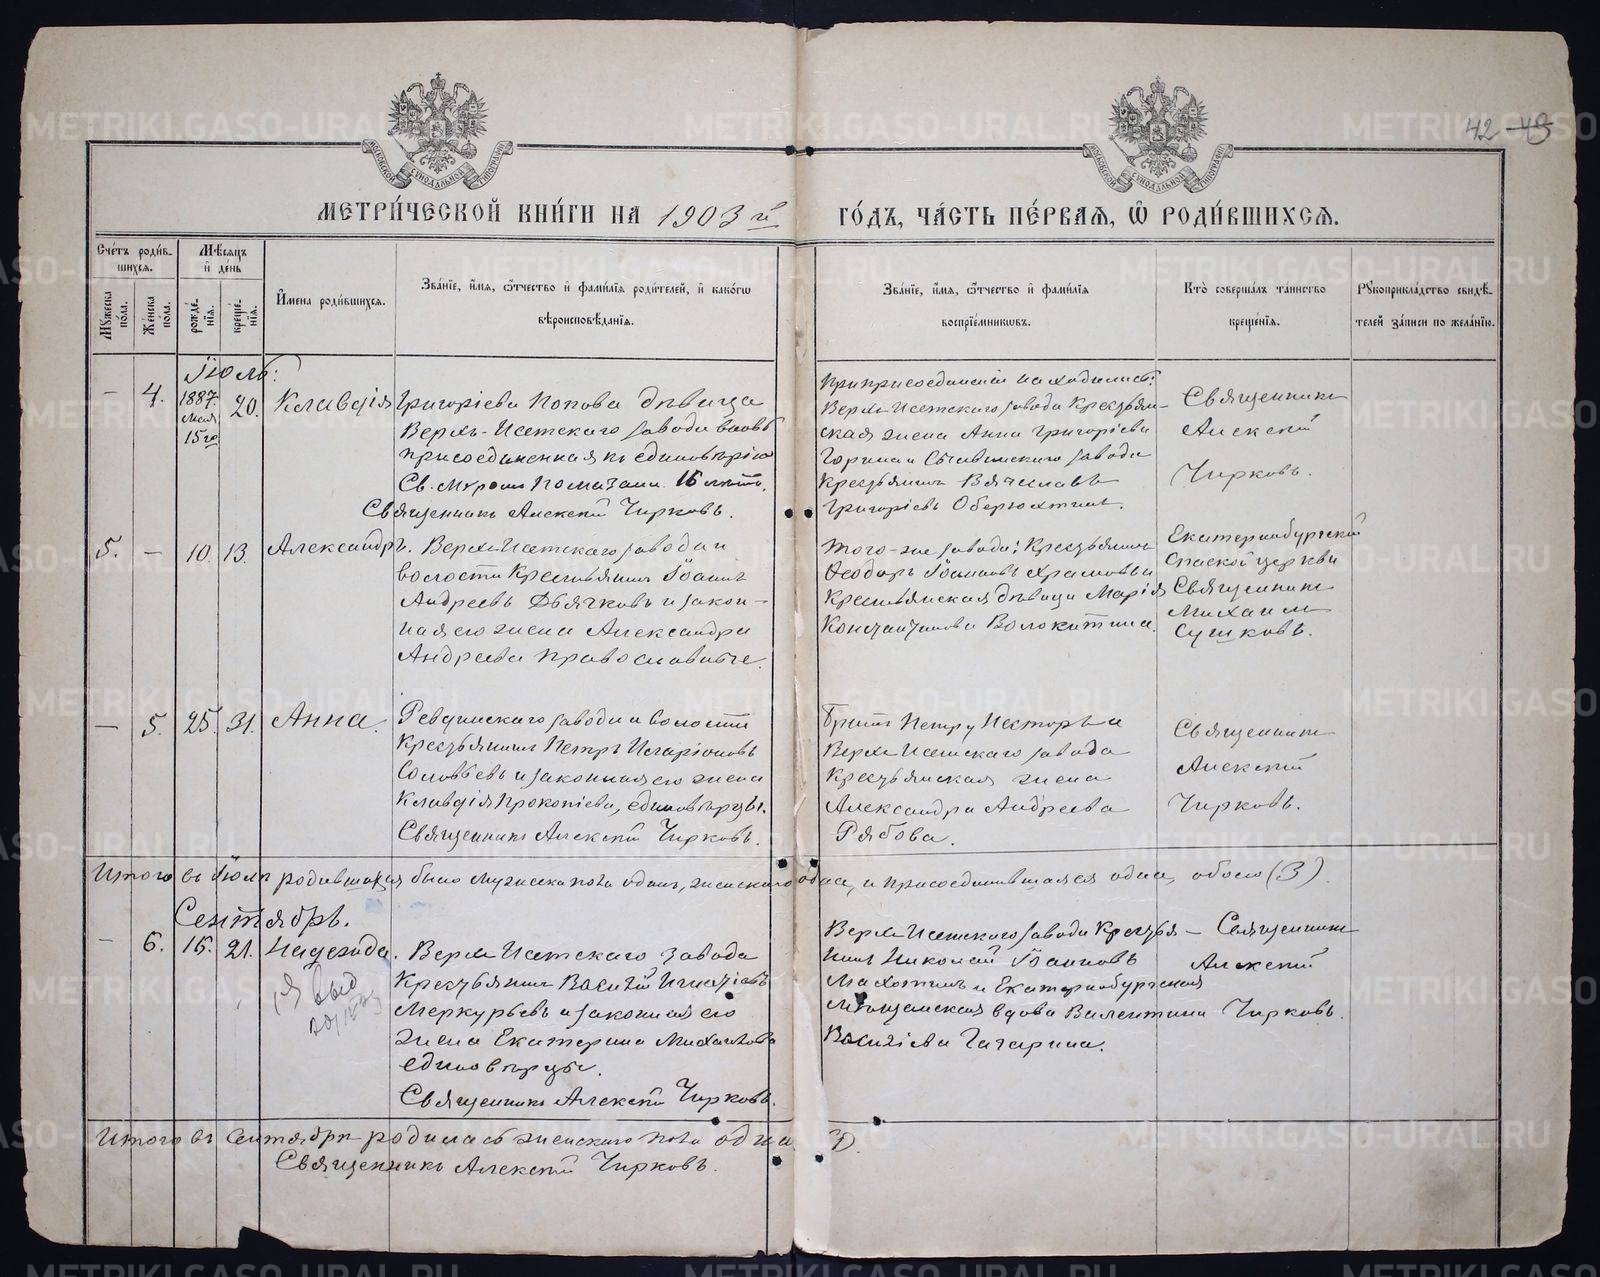 42 49
МОСКОВСКОЙ СѴНОДАЛЬНОЙ ТИПОГРАФІИ
МОСКОВСКОЙ СѴНОДАЛЬНОЙ ТИПОГРАФІИ
МЕТРИ́ЧЕСКОЙ КНИ́ГИ НА 1903 й ГО́ДЪ, ЧА́СТЬ ПЕ́РВАЯ, Ѽ РОДИ́ВШИХСЯ.
Сче́тъ роди́в-
шихся.
Мꙋ́жеска по́ла.
Же́нска по́ла.
Мѣ́сяцъ и҆ де́нь
рожде́нїя.
креще́нїя.
И҆мена роди́вшихся.
Зва́нїе, и҆́мя, ѻ҆́тчество и҆ фами́лїя роди́телей, и҆ како́гѡ
вѣроисповѣ́данїя.
Зва́нїе, и҆́мя, ѻ҆́тчество и҆ фами́лїя
воспрїе́мникѡвъ.
Кто̀ соверша́лъ та́инство
креще́нїя.
Рꙋкоприкла́дство свидѣ́-
телей за́писи по жела́нїю.
Іюль:
— 4. 1887. Мая 15го 20. Клавдія
Григоріева Попова дѣвица
Верхъ-Исетскаго завода вновь
присоединенная къ единовѣрію
Св. Мѵромъ Помазана 16 лѣтъ.
Священникъ Алексій Чирковъ.
При присоединеніи находились:
Верхъ-Исетскаго завода Крестьян-
ская жена Анна Григоріева
Горина и завода
Крестьянинъ Вячеславъ
Григоріевъ Оберюхтинъ.
Священникъ
Алексій
Чирковъ.
5. — 10. 13. Александръ.
Верхъ-Исетскаго завода и
волости Крестьянинъ Іоаннъ
Андреевъ Дьячковъ и закон-
ная его жена Александра
Андреева православные.
того-же завода: Крестьянинъ
Ѳеодоръ Іоанновъ Храмовъ и
Крестьянская дѣвица Марія
Константинова Волокитина.
Екатеринбургской
Спаской церкви
Священникъ
Михаилъ
Сушковъ.
— 5. 25. 31. Анна.
Ревдинскаго завода и волости
Крестьянинъ Петръ Иларіоновъ
Соловьевъ и законная его жена
Клавдія Прокопіева, единовѣрцы.
Священникъ Алексій Чирковъ.
Братъ Петру Несторъ и
Верхъ Исетскаго завода
Крестьянская жена
Александра Андреева
Рябова.
Священникъ
Алексій
Чирковъ.
Итого въ Іюлѣ родившихся было мужеска пола одинъ, женскаго одна, и присоединившаяся одна, обоего (3).
Сентябрь.
— 6. 16. 21. Надежда.
Верхъ Исетскаго завода
Крестьянинъ Василій Игнатіевъ
Меркурьевъ и законная его
жена Екатерина Михайлова
единовѣрцы.
Священникъ Алексій Чирковъ.
Верхъ Исетскаго завода Крестья-
нинъ Николай Іоанновъ
Махотинъ и Екатеринбургская
мѣщанская вдова Валентина
Василіева Гагарина.
Священникъ
Алексій
Чирковъ.
Итого въ Сентябрѣ родилась женскаго пола одна
Священникъ Алексій Чирковъ.
METRIKI.GASO-URAL.RU